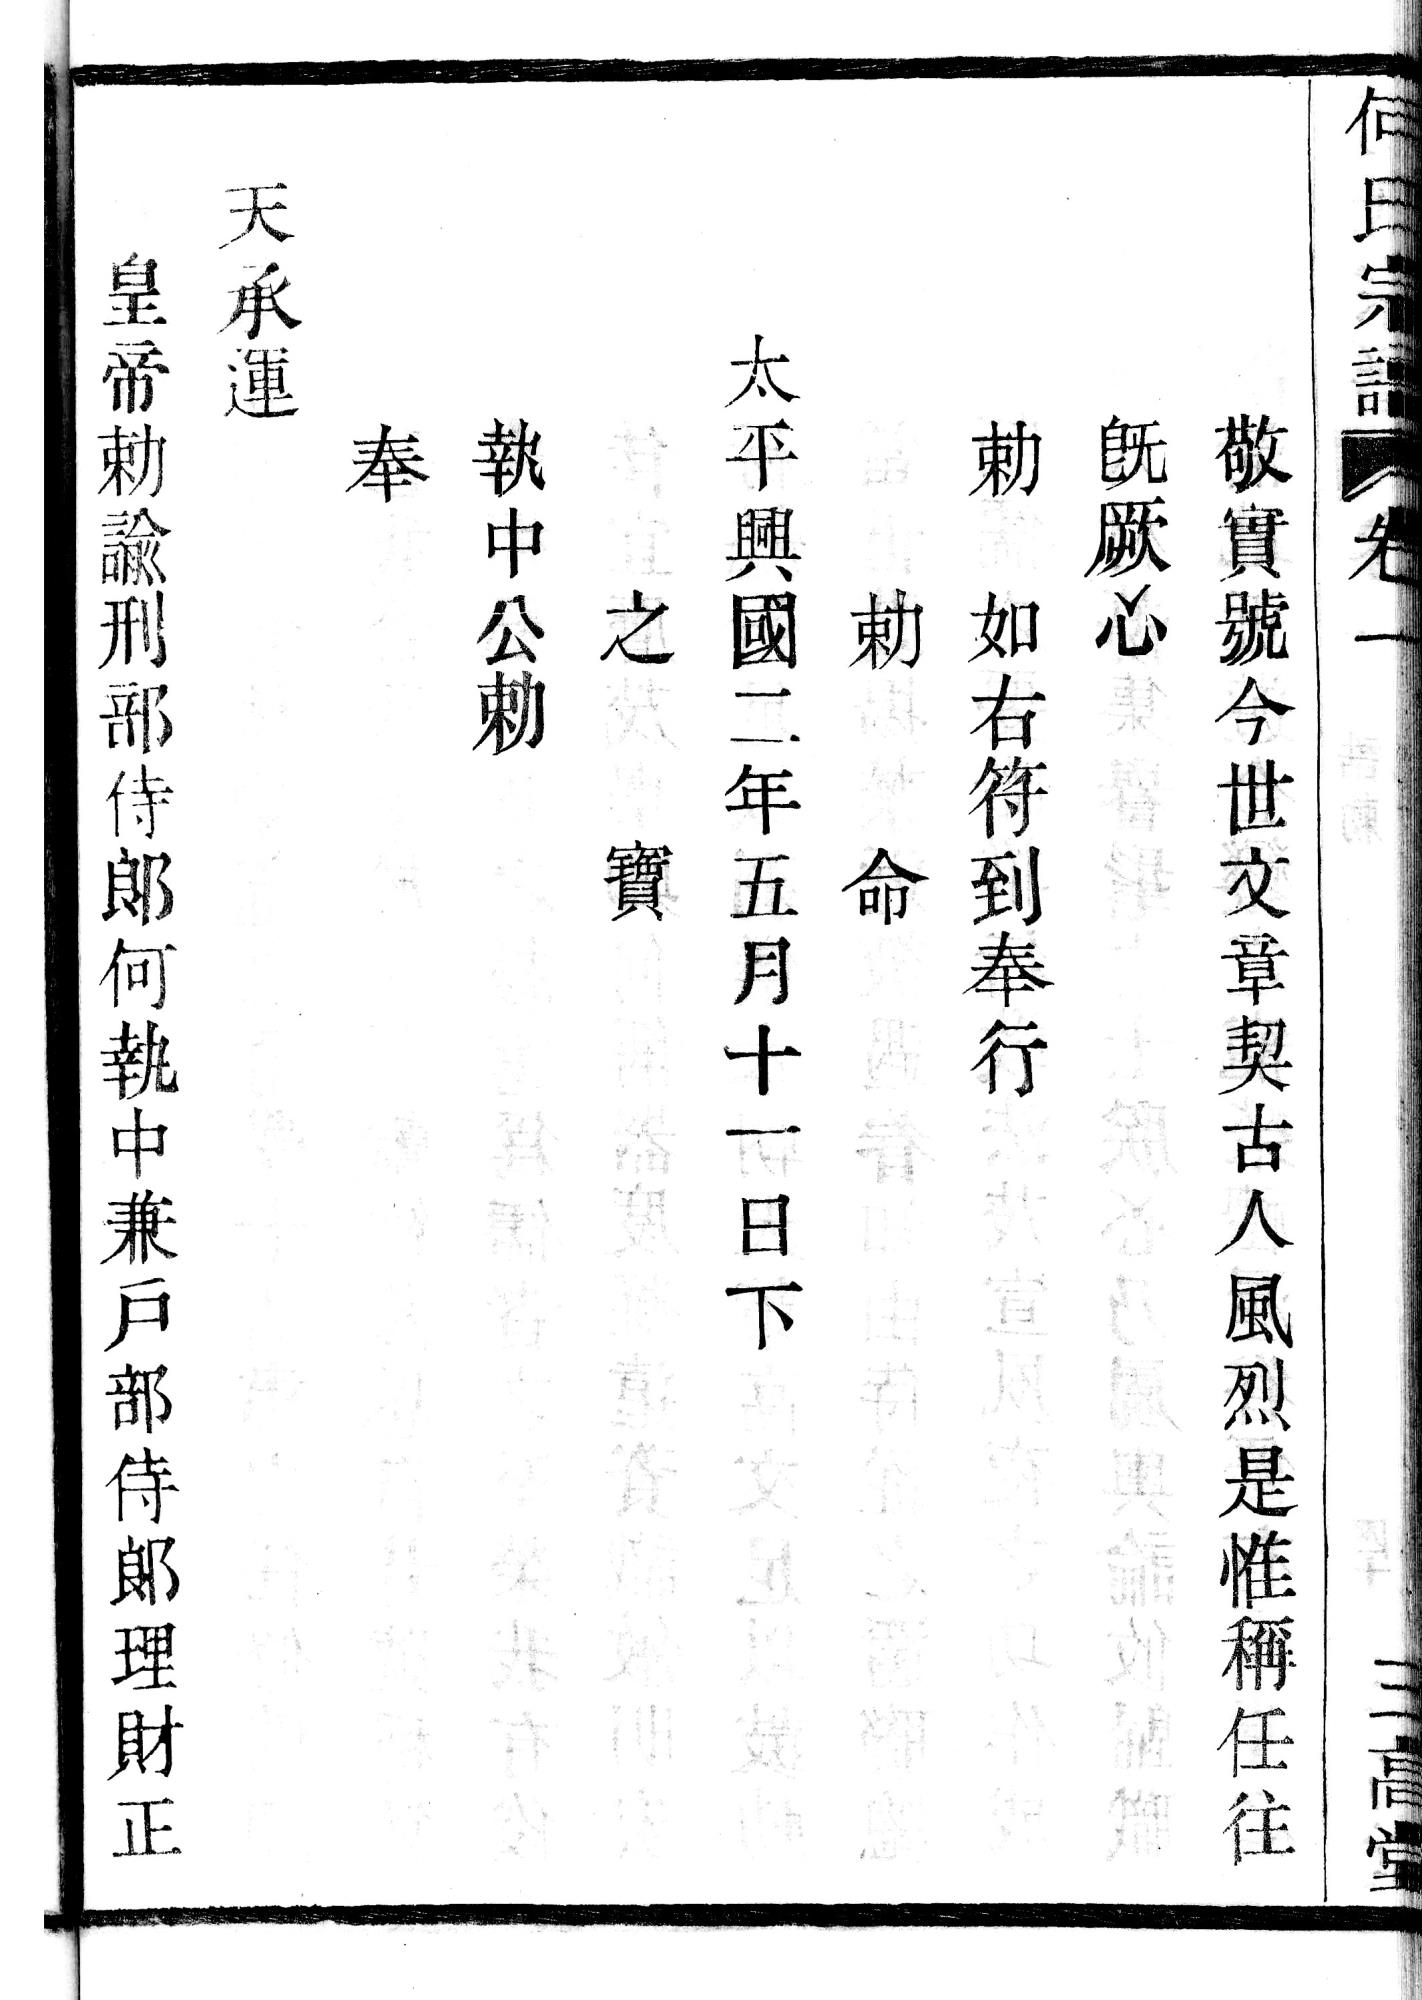 何氏宗譜 卷一 三高堂
敬實號今世文章契古人風烈是惟稱任往
旣厥心
勅　如右符到奉行
勅　命
太平興國二年五月十一日下
之　寶
執中公勅
奉
天承運
皇帝勅諭刑部侍郞何執中兼戶部侍郞理財正